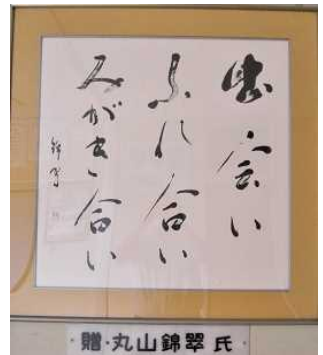 出会い
ふれ合い
みがき合い
錦翠
贈・丸山錦翠氏